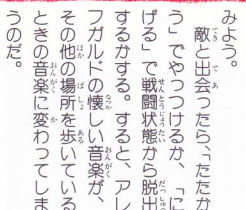 みよう。
敵と出会ったら、「たたか
う」でやっつけるか、「に
げる」で戦闘状態から脱出
するかする。すると、アレ
フガルドの懐しい音楽が、
その他の場所を歩いている
ときの音楽に変わってしま
うのだ。